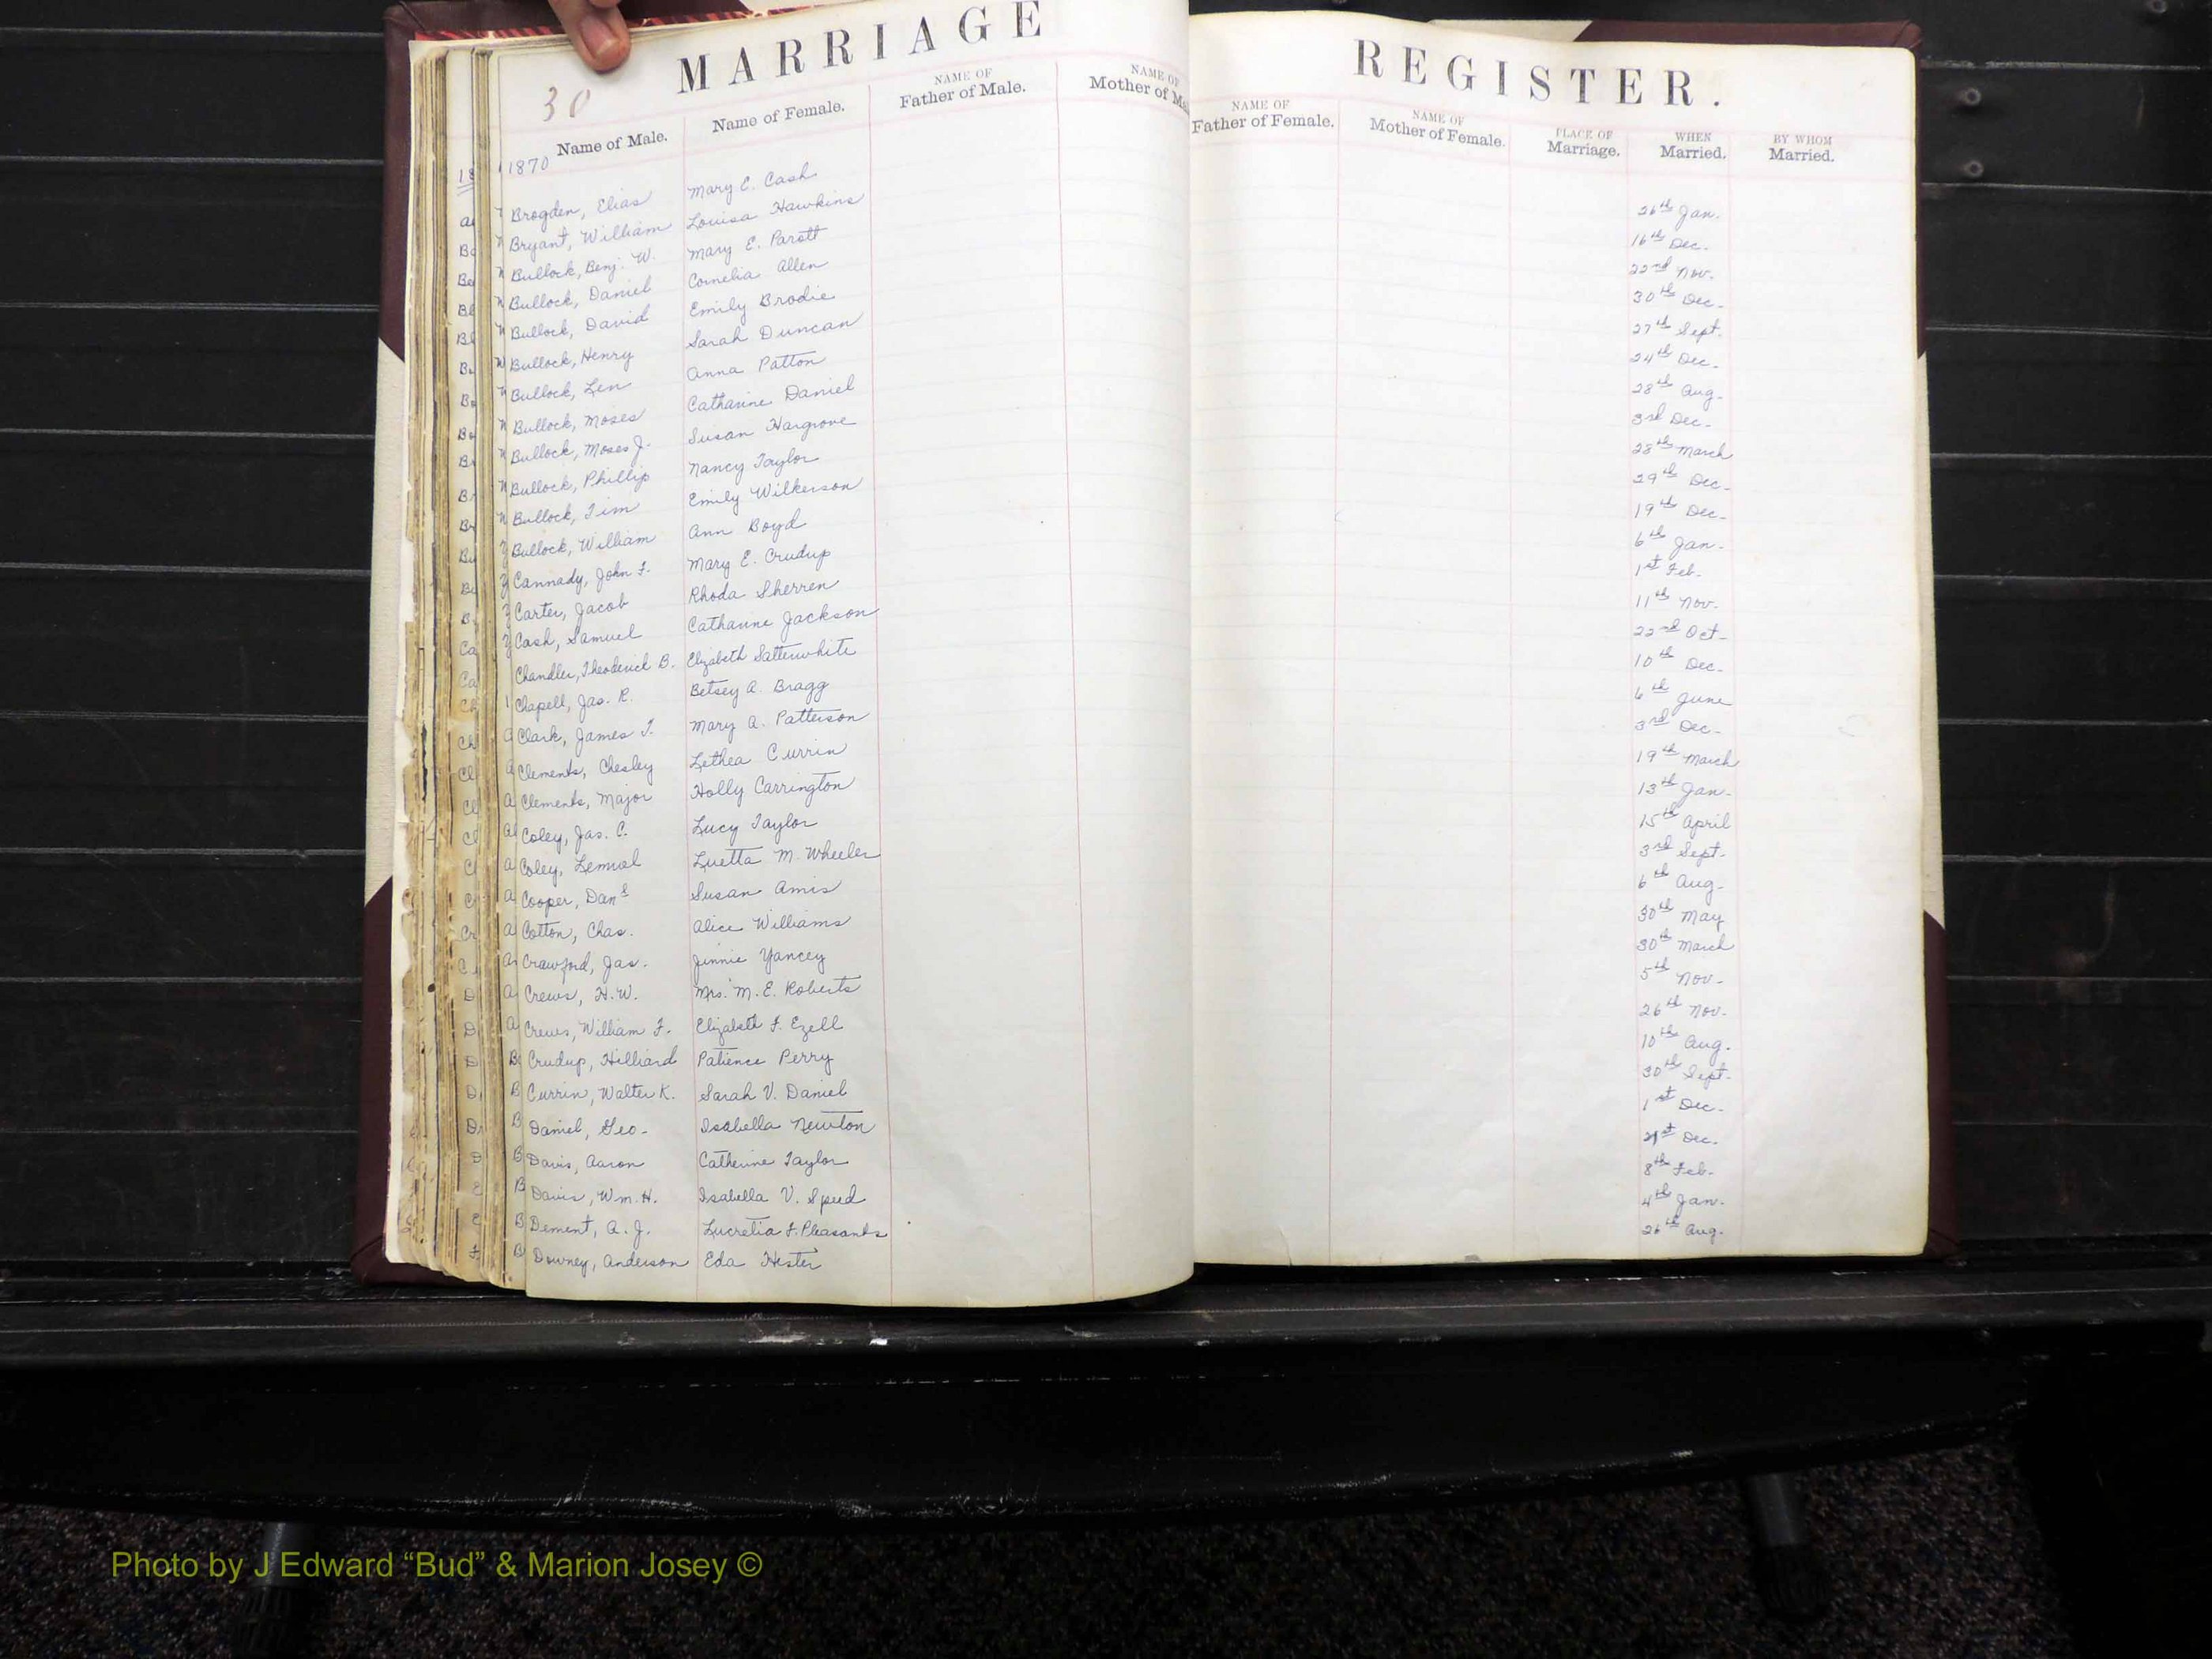 MARRIAGE REGISTER.
30
Name of Male. Name of Female. NAME OF Father of Male. NAME OF Mother of Ma NAME OF Father of Female. NAME OF Mother of Female. PLACE OF Marriage. WHEN Married. BY WHOM Married.
1870
Brogden, Elias Mary E. Cash 26th Jan.
Bryant, William Louisa Hawkins 16th Dec.
Bullock, Benj. W. Mary E. Parott 22nd Nov.
Bullock, Daniel Cornelia Allen 30th Dec.
Bullock, David Emily Brodie 27th Sept.
Bullock, Henry Sarah Duncan 24th Dec.
Bullock, Len Anna Patton 28th Aug.
Bullock, Moses Catharine Daniel 3rd Dec.
Bullock, Moses J. Susan Hargrove 28th March
Bullock, Phillip Nancy Taylor 29th Dec.
Bullock, Tim Emily Wilkerson 19th Dec.
Bullock, William Ann Boyd 6th Jan.
Cannady, John F. Mary E. Crudup 1st Feb.
Carter, Jacob Rhoda Sherren 11th Nov.
Cash, Samuel Catharine Jackson 22nd Oct.
Chandler, Theoderick B. Elizabeth Satterwhite 10th Dec.
Chapell, Jas. R. Betsey A. Bragg 6th June
Clark, James T. Mary A. Patterson 3rd Dec.
Clements, Chesley Lethea Currin 19th March
Clements, Major Holly Carrington 13th Jan.
Coley, Jas. C. Lucy Taylor 15th April
Coley, Lemuel Luetta M. Wheeler 3rd Sept.
Cooper, Danl Susan Amis 6th Aug.
Cotton, Chas. Alice Williams 30th May
Crawford, Jas. Jinnie Yancey 30th March
Crews, H.W. Mrs. M. E. Roberts 5th Nov.
Crews, William F. Elizabeth F. Ezell 26th Nov.
Crudup, Hilliard Patience Perry 10th Aug.
Currin, Walter K. Sarah V. Daniel 30th Sept.
Daniel, Geo. Isabella Newton 1st Dec.
Davis, Aaron Catherine Taylor 21st Dec.
Davis, Wm. H. Isabella V. Speed 8th Feb.
Dement, A. J. Lucretia F. Pleasants 4th Jan.
Downey, Anderson Eda Hester 26th Aug.
Photo by J Edward “Bud” & Marion Josey ©